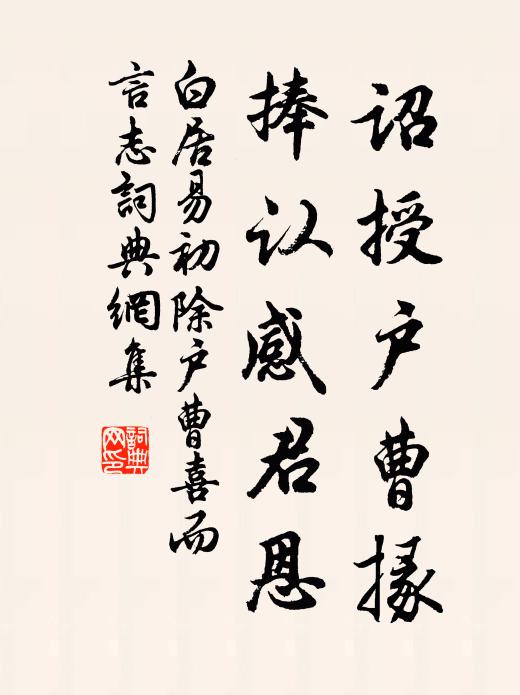 詔授户曹掾
捧认感君恩
白居易初除户曹喜而
言志詞典網集
詞典
网印